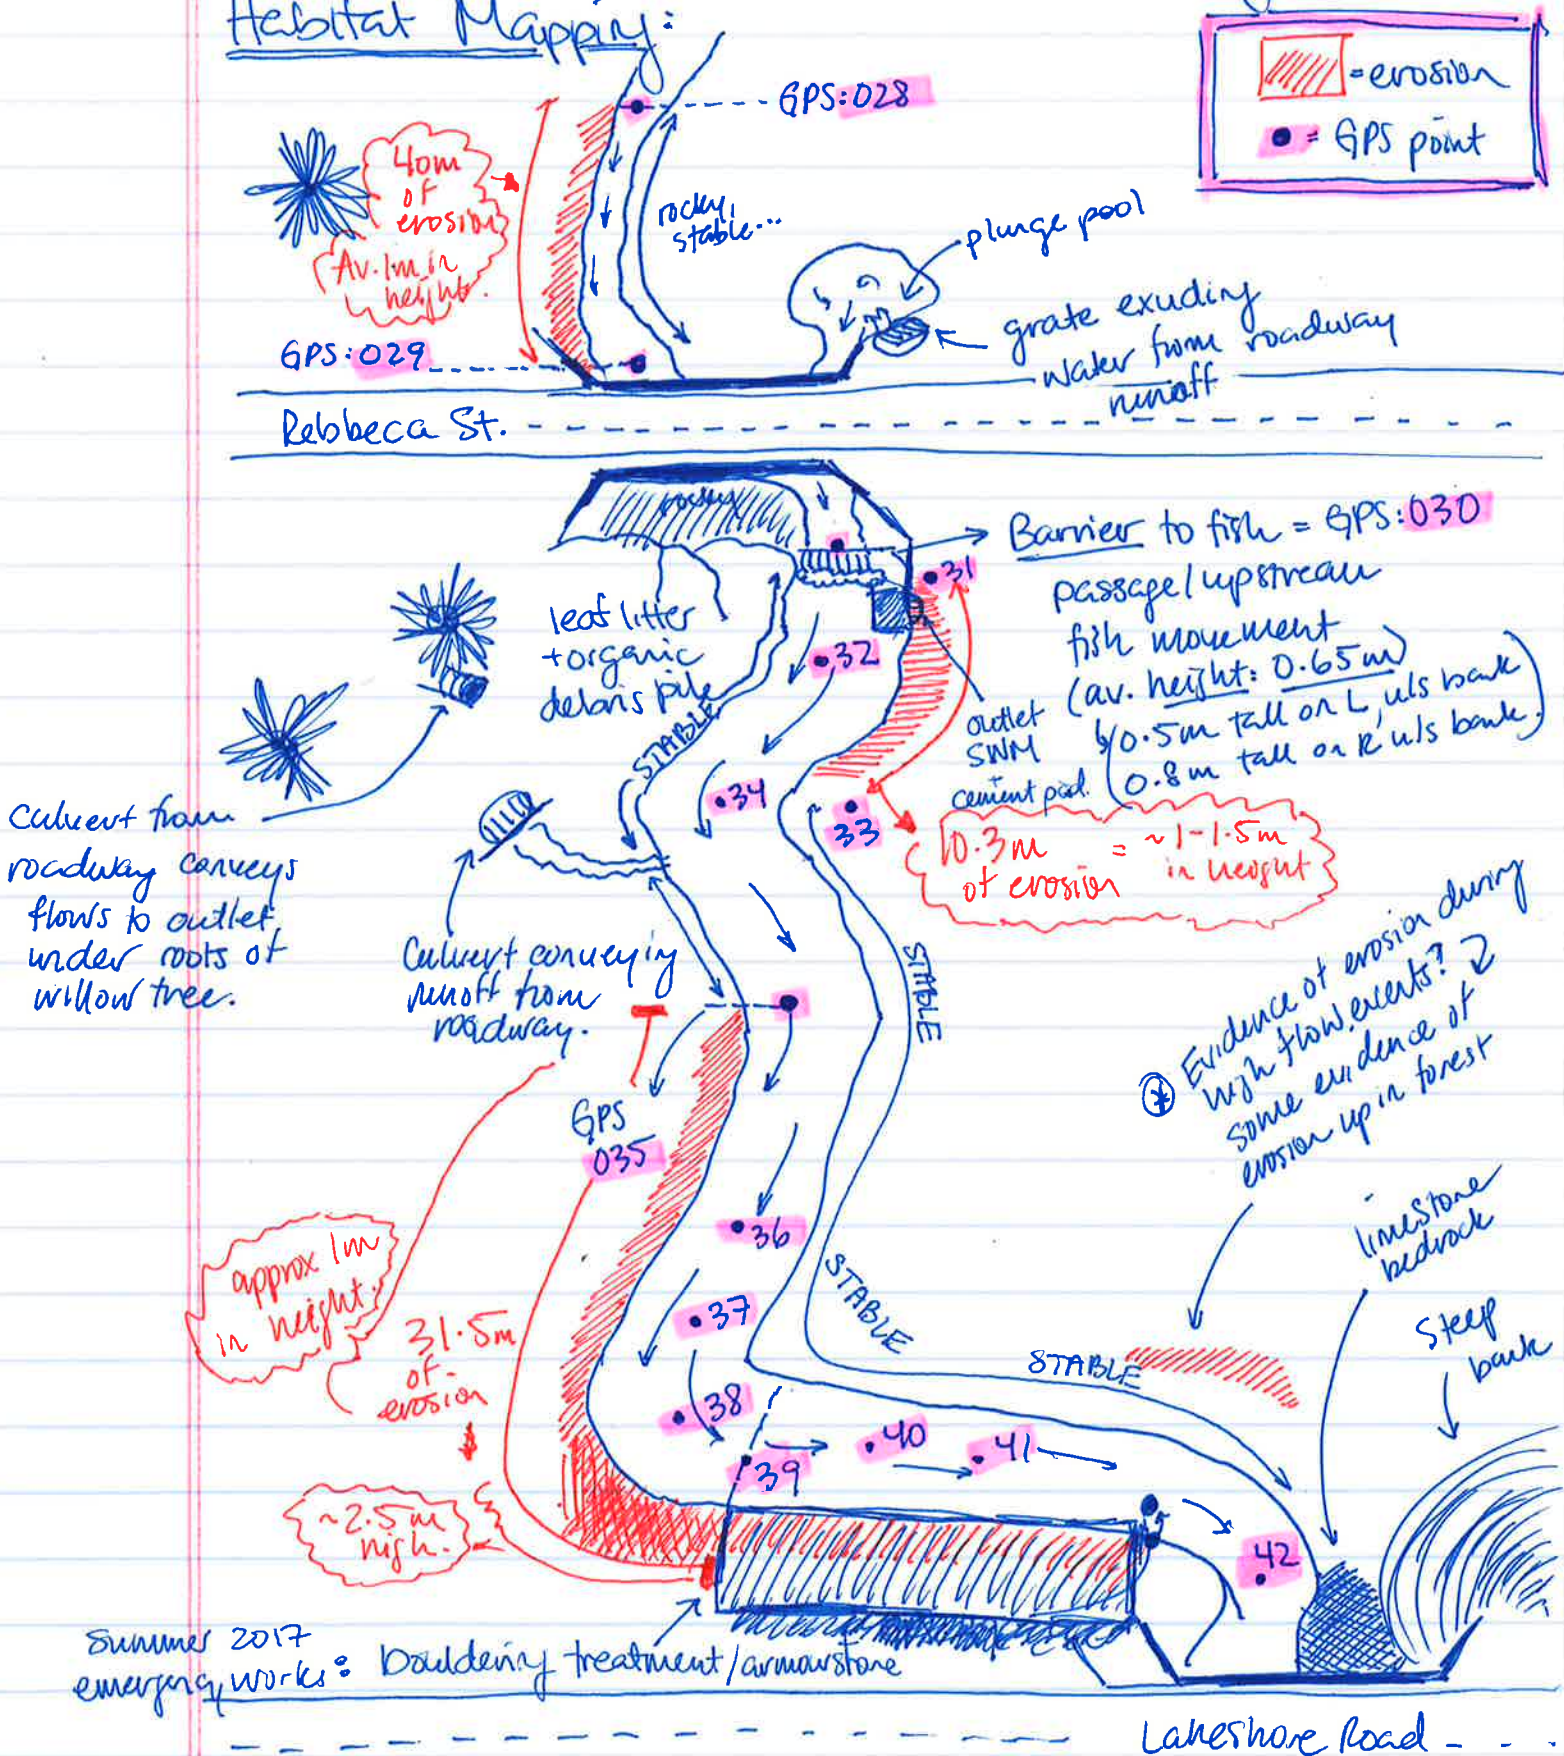 Habitat Mapping:
= erosion
= GPS point
GPS:028
40m
of
erosion
Av. 1m in
height.
rocky,
stable...
plunge pool
grate exuding
water from roadway
runoff
GPS:029
Rebbeca St.
rocky
Barrier to fish = GPS:030
passage/upstream
fish movement
(av. height: 0.65m)
0.5m tall on L, u/s bank
0.8m tall on R u/s bank.)
31
leaf litter
+organic
debris pile
32
outlet
SWM
cement pad.
STABLE
34
33
10.3m = ~1-1.5m
of erosion in height
Culvert from
roadway conveys
flows to outlet
under roots of
willow tree.
Culvert conveying
runoff from
roadway.
STABLE
Evidence of erosion during
high flow events?
some evidence of
erosion up in forest
GPS
035
36
approx 1m
in height.
31.5m
of
erosion
37
STABLE
STABLE
limestone
bedrock
Steep
bank
38
39
40
41
42
~2.5m
high.
Summer 2017
emergency works: bouldering treatment/armourstone
Lakeshore Road